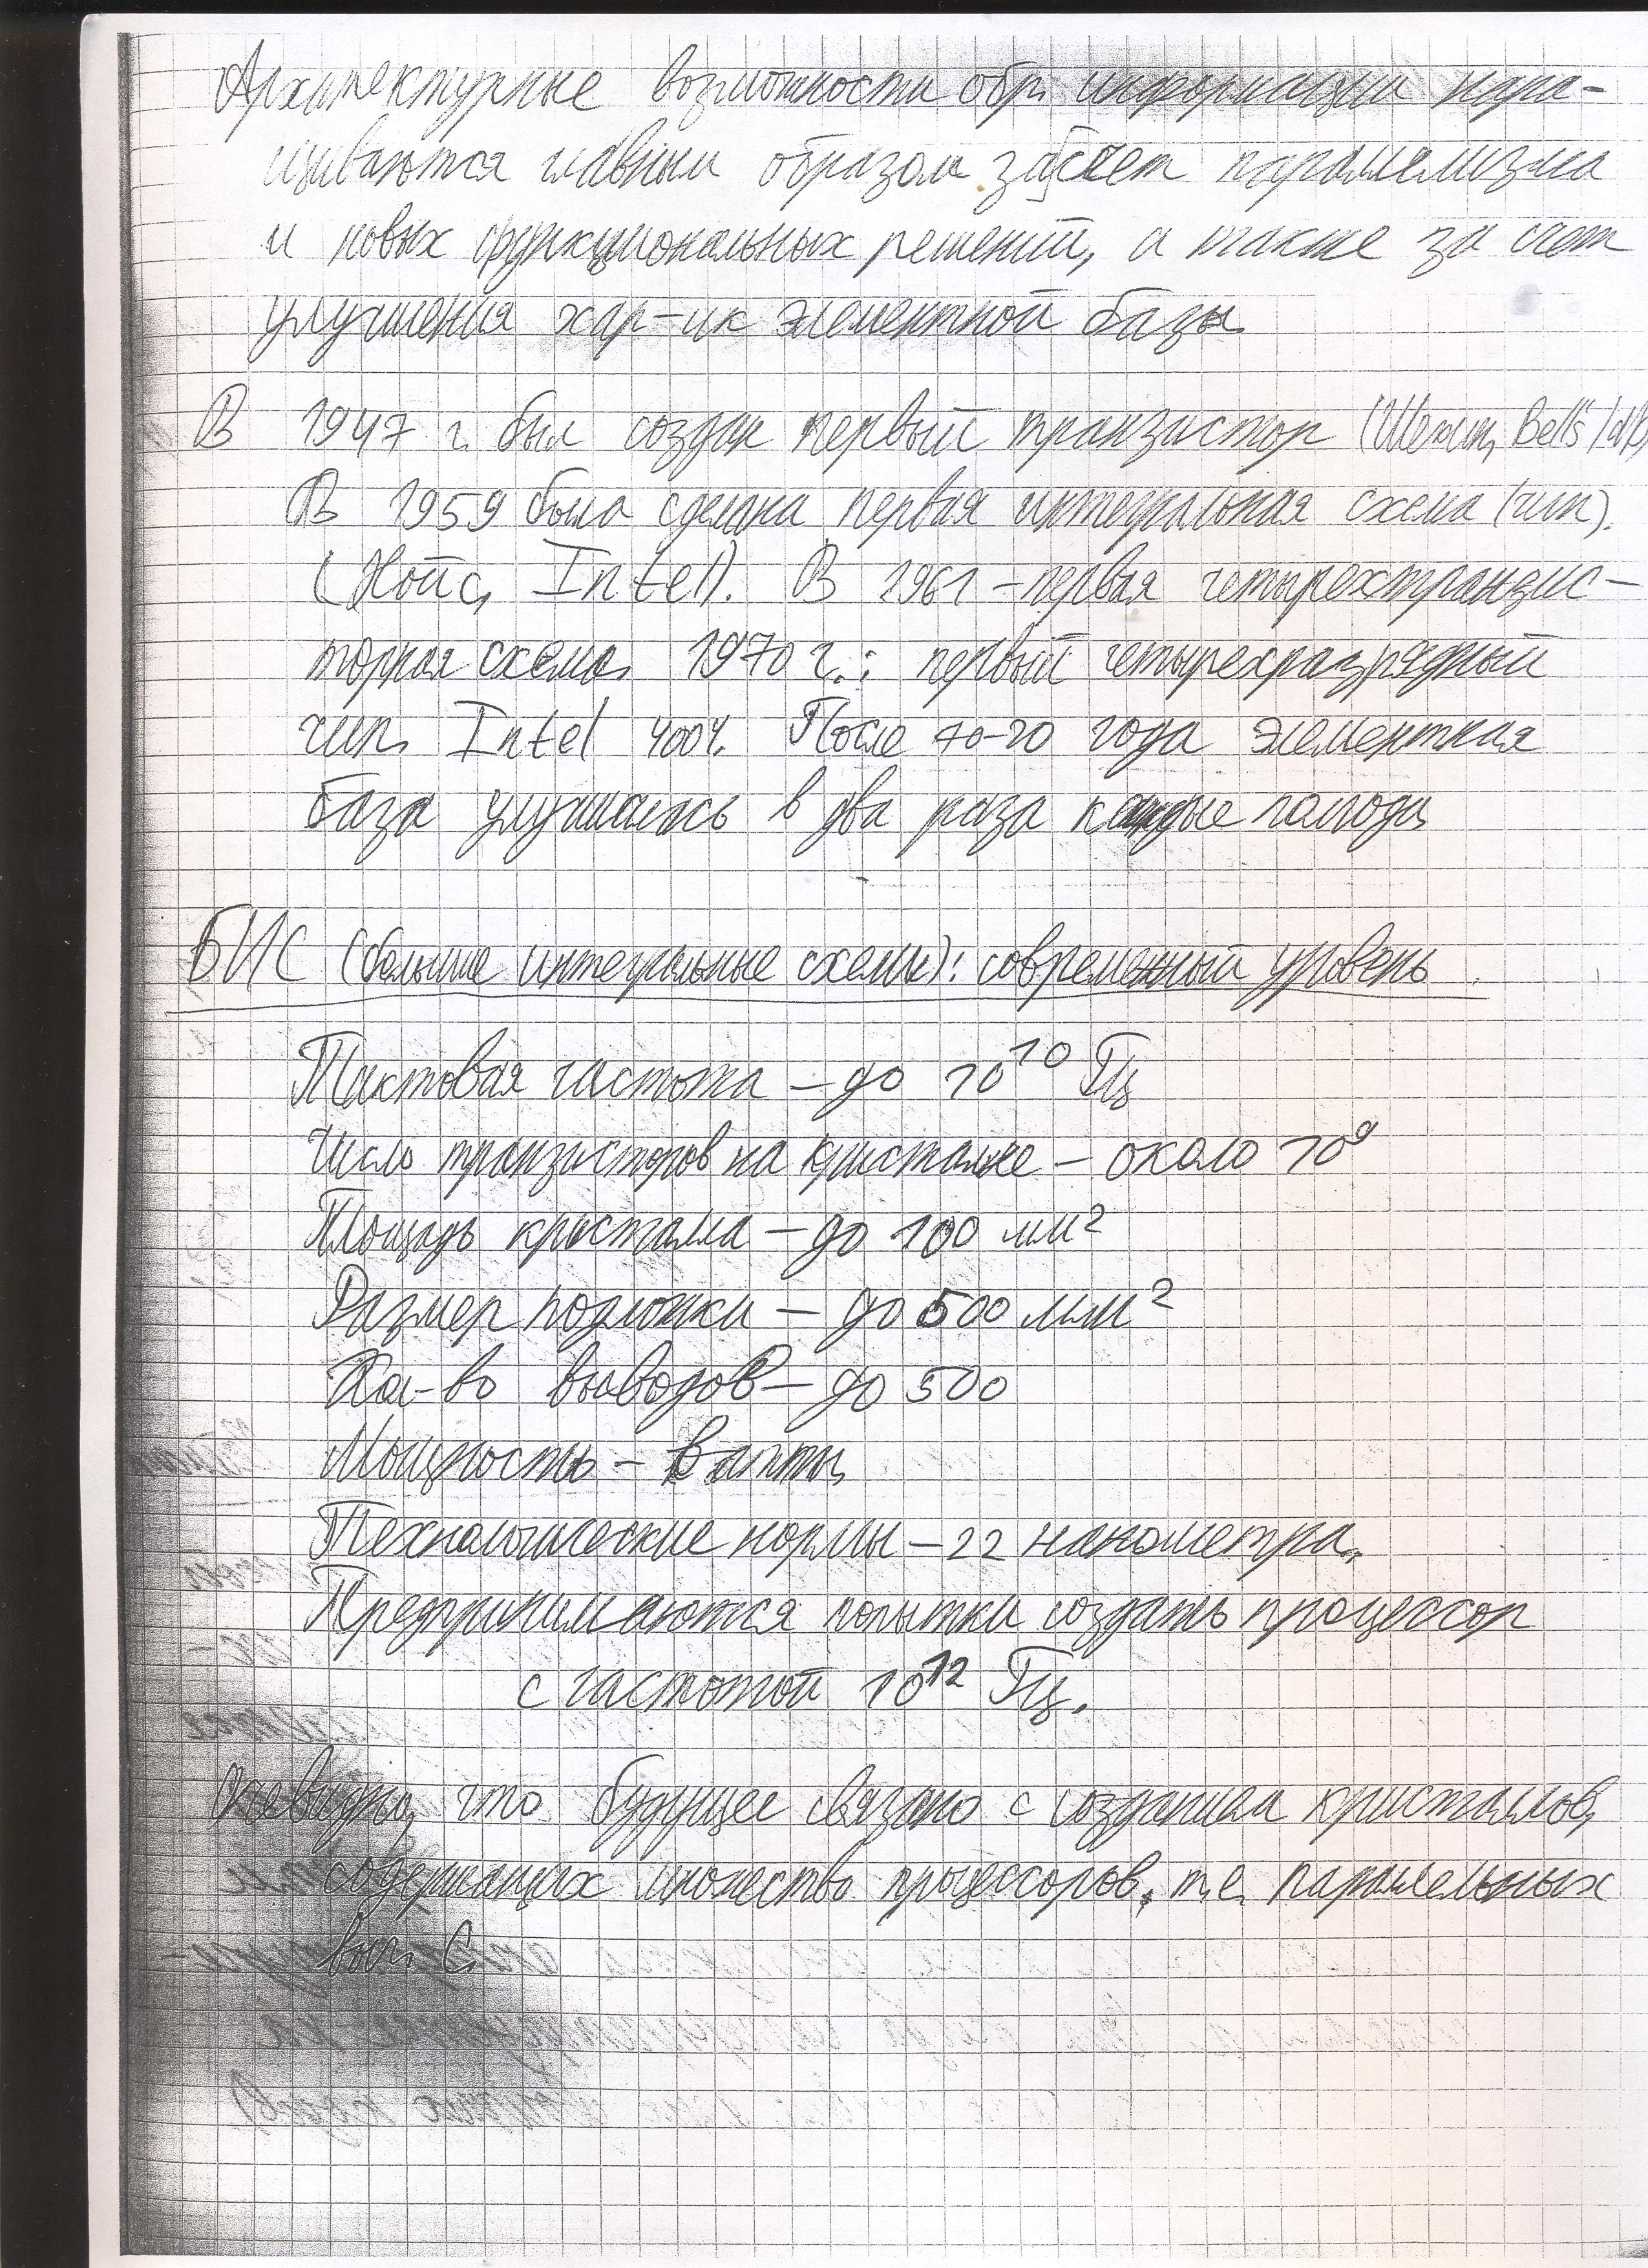 Архитектурные возможности обр. информации нара-
щиваются главным образом за счет параллелизма
и новых функциональных решений, а также за счет
улучшения хар-ик элементной базы
В 1947 г. был создан первый транзистор (Шокли, Bell's lab)
В 1959 была сделана первая интегральная схема (чип).
(Нойс, Intel). В 1961 – первая четырехтранзис-
торная схема. 1970 г.: первый четырехразрядный
чип Intel 4004. После 70-го года элементная
база улучшалась в два раза каждые полгода
БИС (большие интегральные схемы): современный уровень.
Тактовая частота – до 10¹⁰ Гц
Число транзисторов на кристалле – около 10⁹
Площадь кристалла – до 100 мм²
Размер подложки – до 500 мм²
Кол-во выводов – до 500
Мощность – Ватты
Технологические нормы – 22 нанометра.
Предпринимаются попытки создать процессор
с частотой 10¹² Гц.
Очевидно, что будущее связано с созданием кристаллов,
содержащих множество процессоров, т.е. параллельных
выч. С.